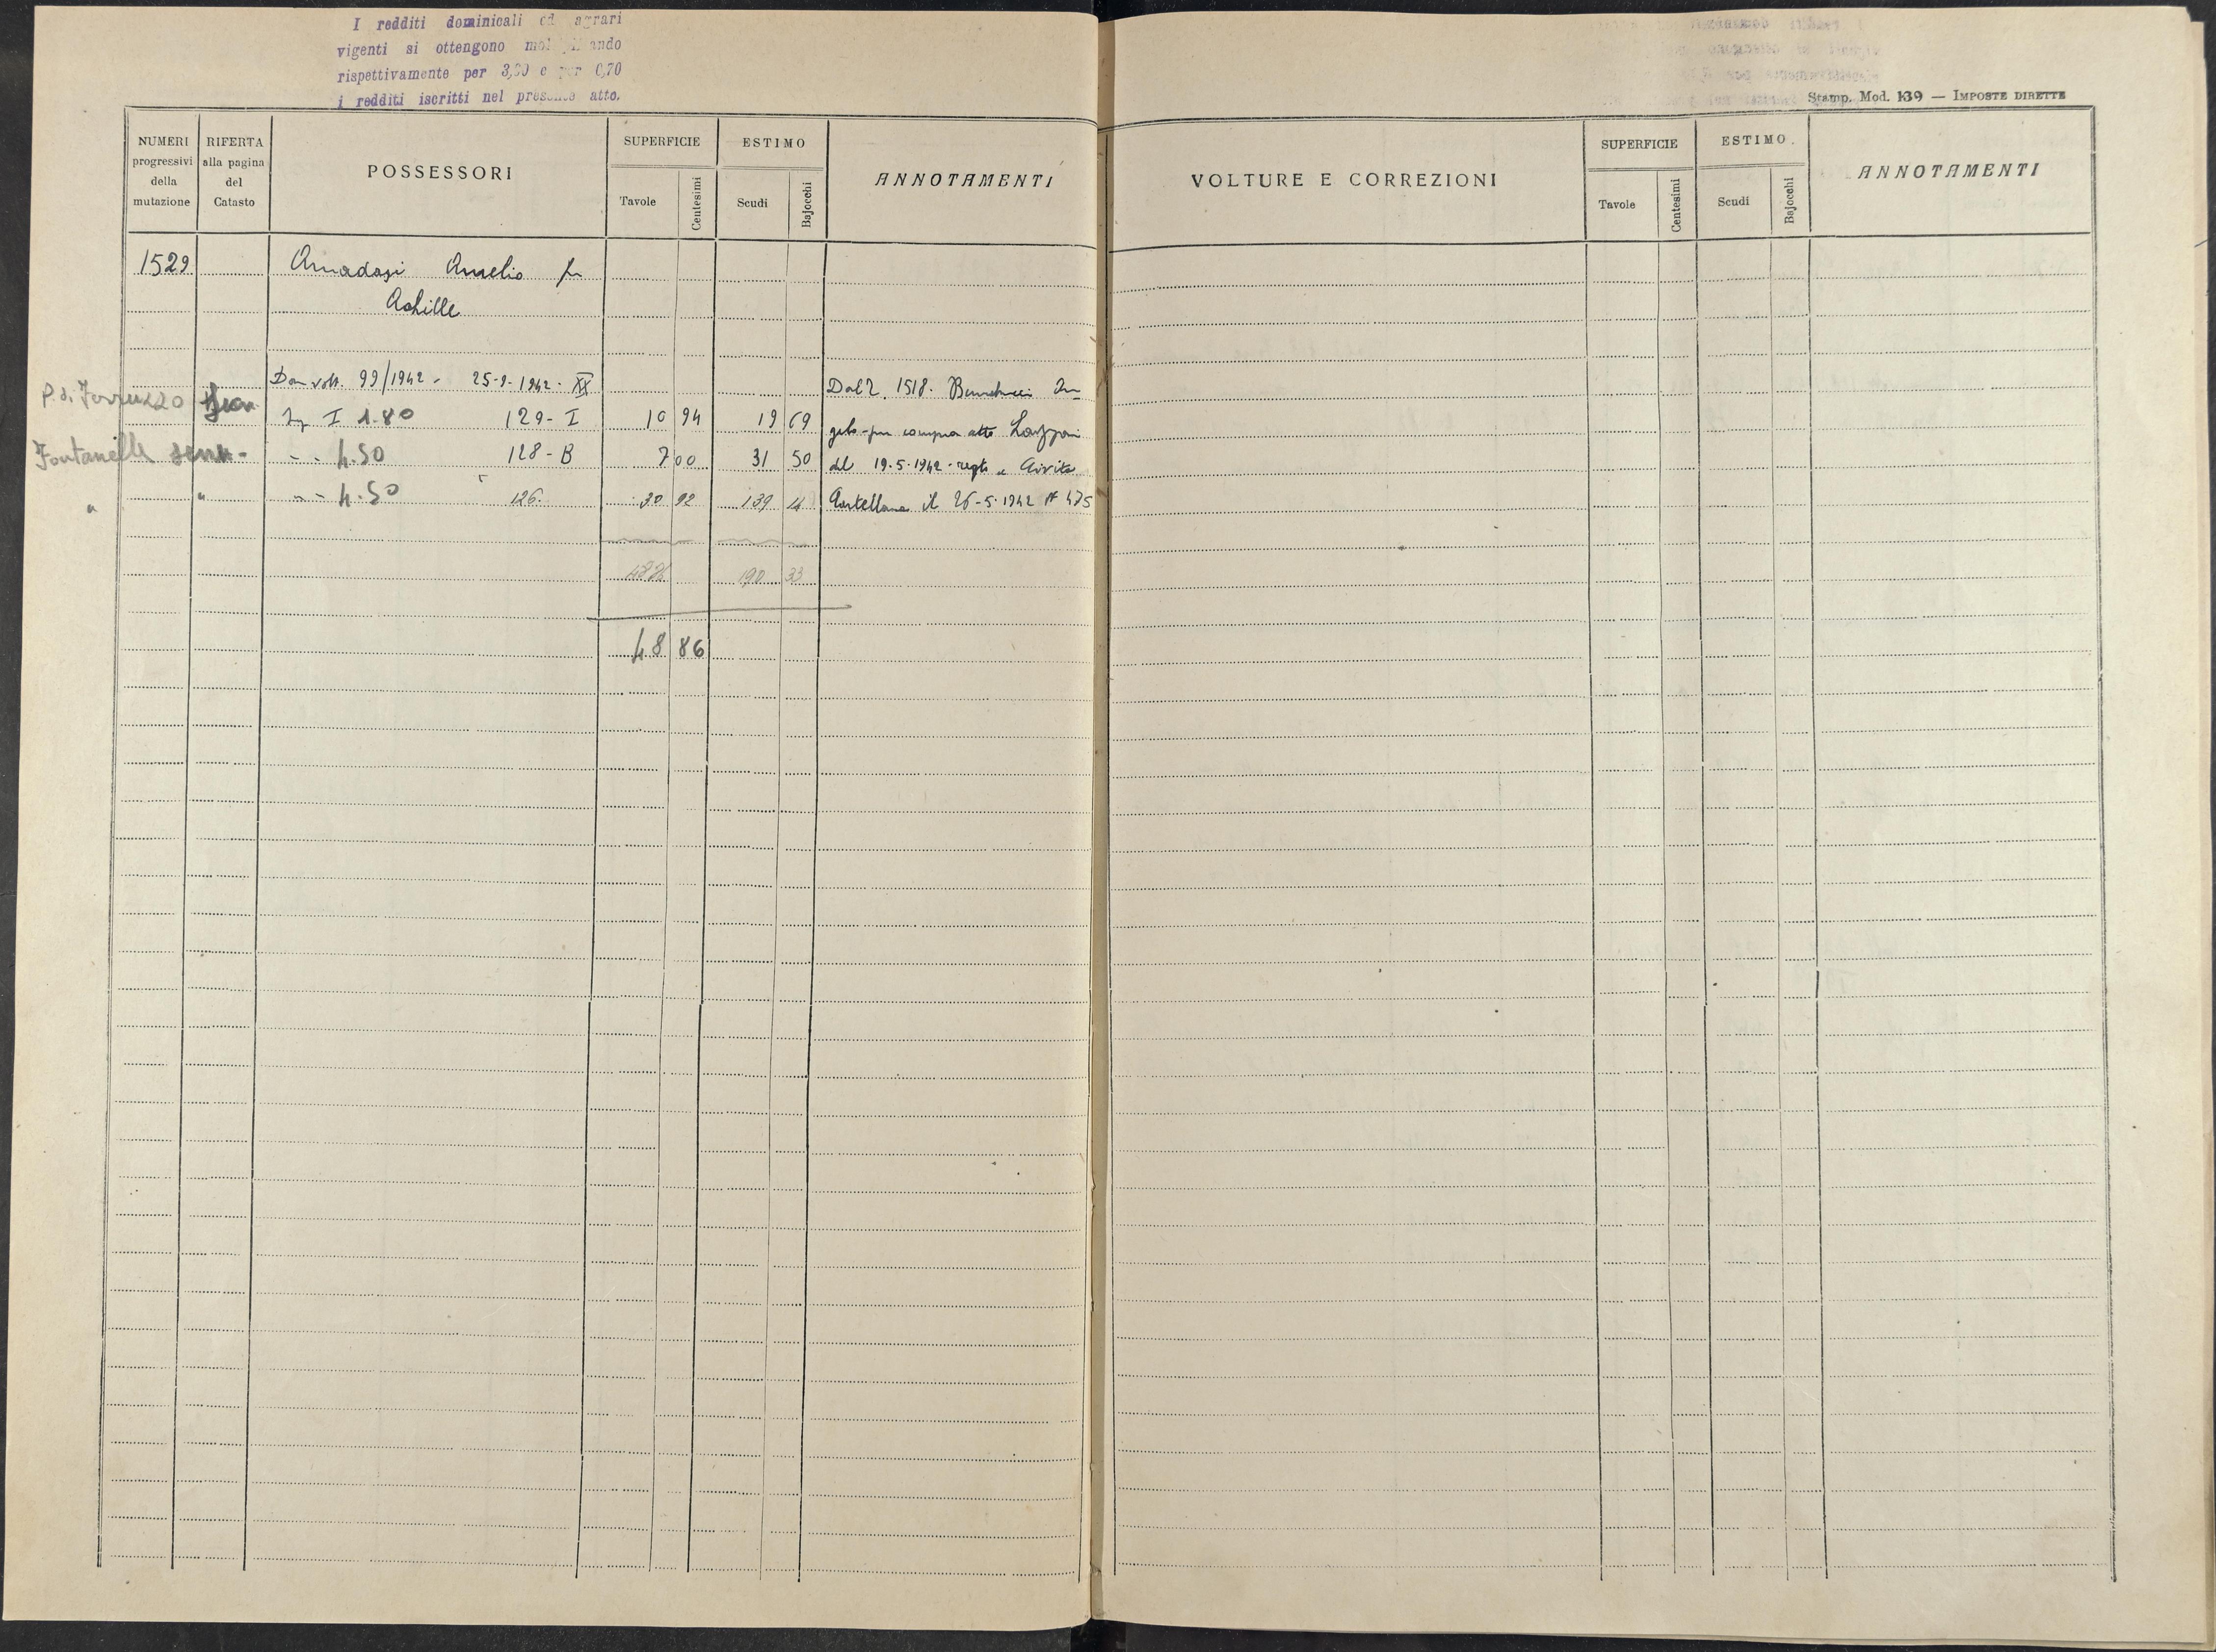 I redditi dominicali ed agrari
vigenti si ottengono
rispettivamente per 3,00 e per 0,70
i redditi iscritti nel presente atto.
Stamp. Mod. 139 — IMPOSTE DIRETTE
NUMERI progressivi della mutazione
RIFERTA alla pagina del Catasto
POSSESSORI
SUPERFICIE
Tavole Centesimi
ESTIMO
Scudi Bajocchi
ANNOTAMENTI
VOLTURE E CORREZIONI
SUPERFICIE
Tavole Centesimi
ESTIMO
Scudi Bajocchi
ANNOTAMENTI
1529 Amadasi Amelio fu
Achille
Da volt. 99/1942 - 25-9-1942 - XX
I 1.80 129 - I 10 94 19 69
Fontanelle - - 4.50 128 - B 7 00 31 50
" " - - 4.50 " 126 30 92 139 14
190 33
48 86
Dal 2. 1518.
gelo - per compra atto Lazzari
del 19.5.1942 - regto a Civita
Castellana il 26-5-1942 N° 475